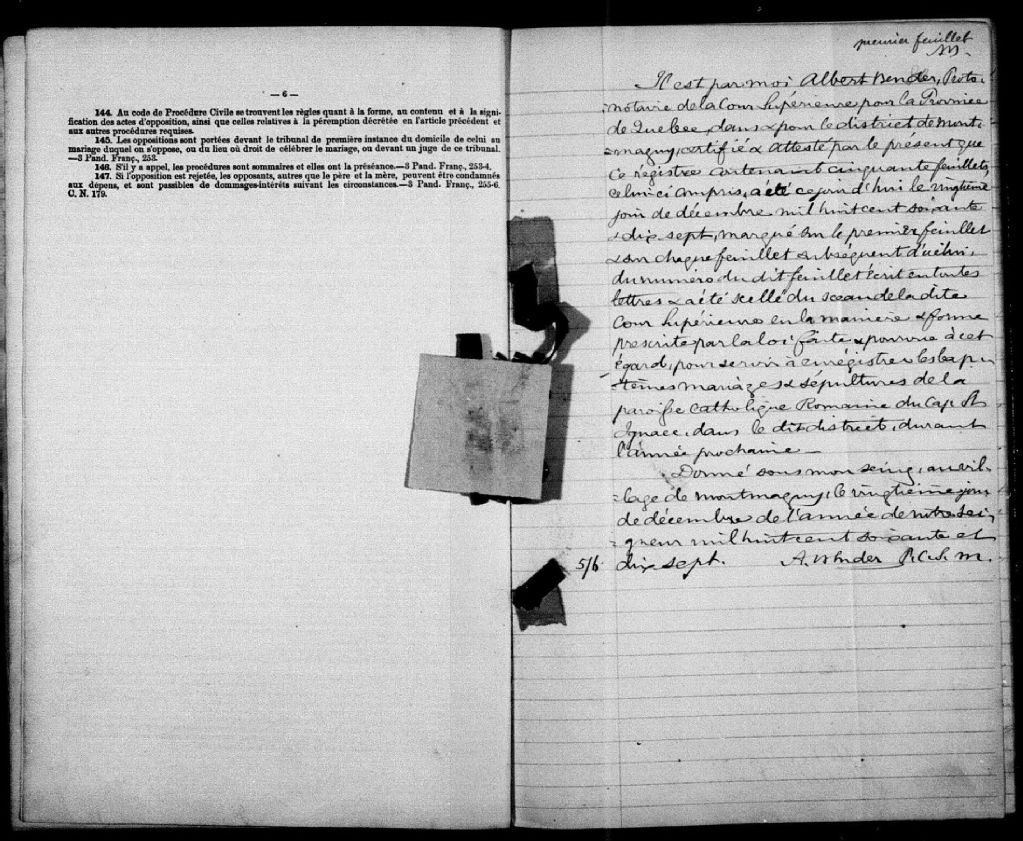 — 6 —
144. Au code de Procédure Civile se trouvent les règles quant à la forme, au contenu et à la signi-
fication des actes d'opposition, ainsi que celles relatives à la péremption décrétée en l'article précédent et
aux autres procédures requises.
145. Les oppositions sont portées devant le tribunal de première instance du domicile de celui au
mariage duquel on s'oppose, ou du lieu où droit de célébrer le mariage, ou devant un juge de ce tribunal.
—3 Pand. Franç., 253.
146. S'il y a appel, les procédures sont sommaires et elles ont la préséance.—3 Pand. Franç., 253-4.
147. Si l'opposition est rejetée, les opposants, autres que le père et la mère, peuvent être condamnés
aux dépens, et sont passibles de dommages-intérêts suivant les circonstances.—3 Pand. Franç., 255-6.
C. N. 179.
premier feuillet
Il est par moi Albert Bender, Proto-
notaire de la Cour Supérieure pour la Province
de Quebec, dans & pour le district de Mont-
magny, certifié & attesté par le présent que
ce régistre contenant cinquante feuillets,
celui ci compris, a été ce jourd'hui le vingtième
jour de décembre mil huit cent soixante
& dix sept, marqué sur le premier feuillet
& sur chaque feuillet subséquent d'icelui,
du numéro du dit feuillet écrit en toutes
lettres & a été scellé du sceau de la dite
Cour Supérieure en la manière & forme
prescrite par la loi faite & pourvue à cet
égard, pour servir à enrégistrer les bap-
têmes mariages & sépultures de la
paroisse Catholique Romaine du Cap St
Ignace, dans le dit district, durant
l'année prochaine —
Donné sous mon seing, au vil-
lage de Montmagny, le vingtième jour
de décembre de l'année de notre Sei-
gneur mil huit cent soixante et
5/6 dix sept. A. Bender P.C.S.M.